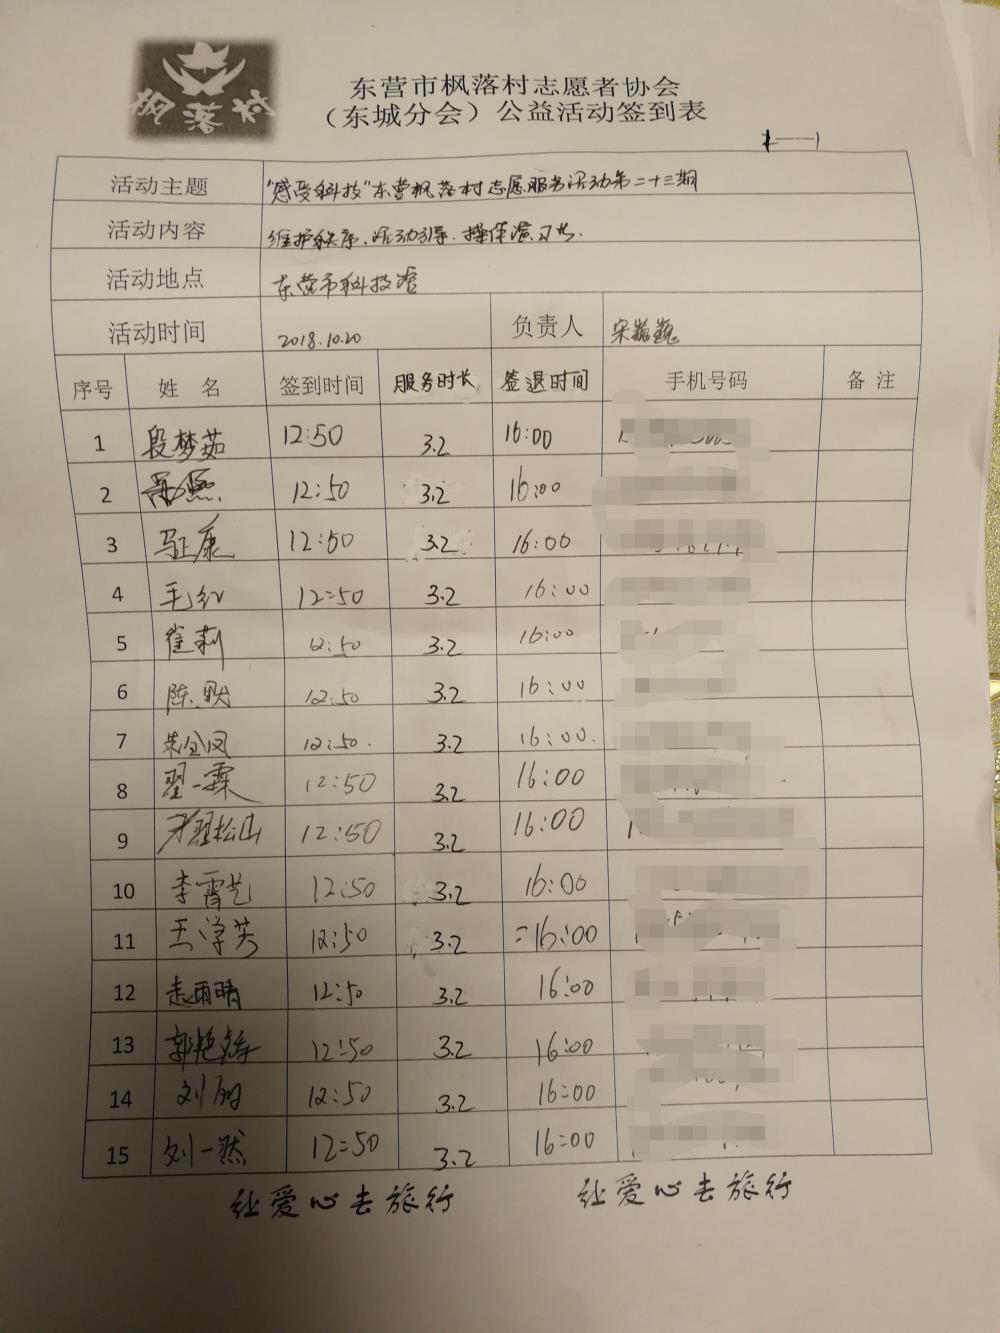 枫落村
东营市枫落村志愿者协会
（东城分会）公益活动签到表
(一)
活动主题 "感受科技"东营枫落村志愿服务活动第二十三期
活动内容 维护秩序、活动引导、
活动地点 东营市科技馆
活动时间 2018.10.20 负责人 宋
序号 姓 名 签到时间 服务时长 签退时间 手机号码 备 注
1 段梦茹 12:50 3.2 16:00
2 12:50 3.2 16:00
3 马正康 12:50 3.2 16:00
4 毛红 12:50 3.2 16:00
5 崔莉 12:50 3.2 16:00
6 陈默 12:50 3.2 16:00
7 12:50. 3.2 16:00.
8 翟一霖 12:50 3.2 16:00
9 松山 12:50 3.2 16:00
10 李霄艺 12:50 3.2 16:00
11 王学英 12:50 3.2 16:00
12 赵雨晴 12:50 3.2 16:00
13 郭艳 12:50 3.2 16:00
14 刘 12:50 3.2 16:00
15 刘一然 12:50 3.2 16:00
让爱心去旅行 让爱心去旅行